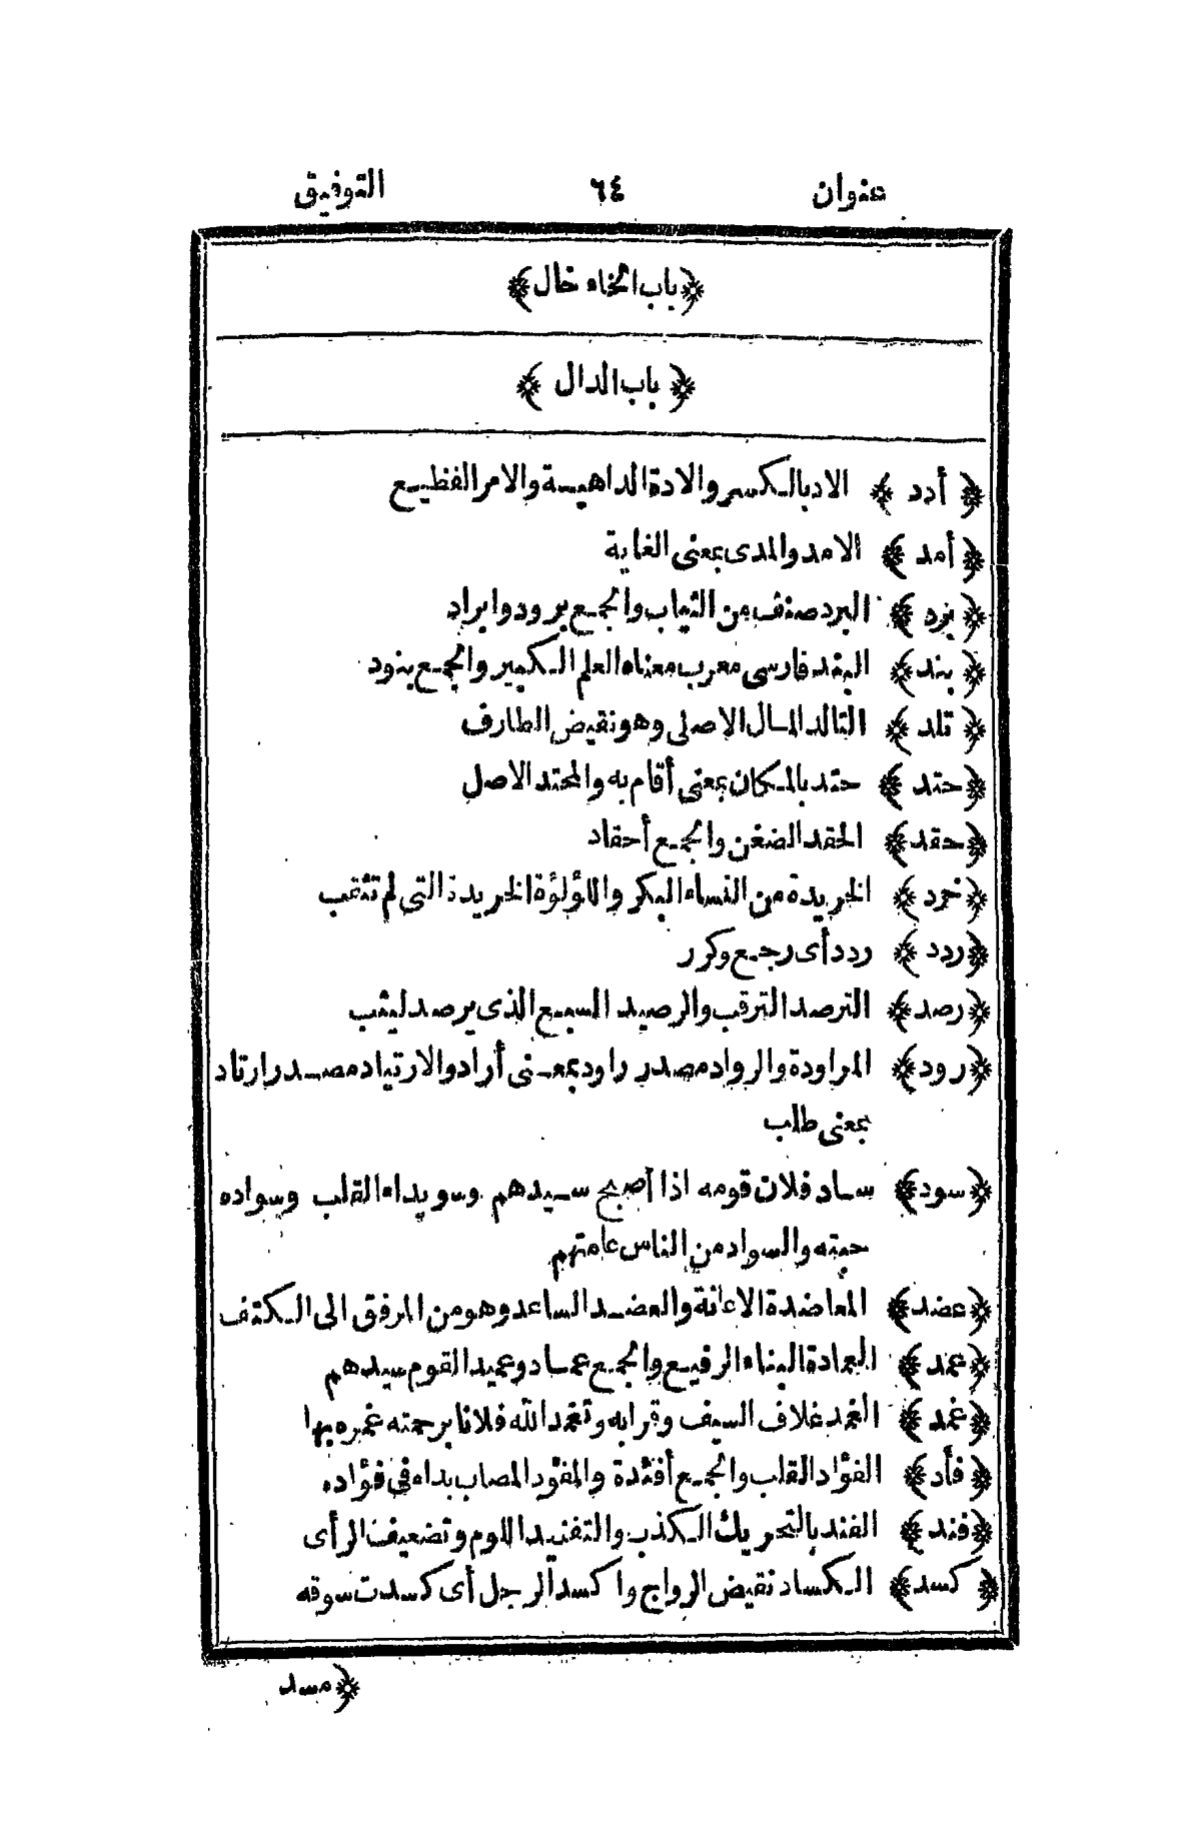 عنوان ٦٤ التوفيق
﴿باب الخاء خال﴾
﴿باب الدال﴾
﴿أدد﴾ الاد بالكسر والادة الداهية والامر الفظيع
﴿أمد﴾ الامد والمدى بمعنى الغاية
﴿برد﴾ البرد صنف من الثياب والجمع برود وابراد
﴿بند﴾ البند فارسى معرب معناه العلم الكبير والجمع بنود
﴿تلد﴾ التالد المال الاصلى وهو نقيض الطارف
﴿حتد﴾ حتد بالمكان بمعنى أقام به والمحتد الاصل
﴿حقد﴾ الحقد الضغن والجمع أحقاد
﴿خرد﴾ الخريدة من النساء البكر واللؤلؤة الخريدة التى لم تثقب
﴿ردد﴾ ردد أى رجع وكرر
﴿رصد﴾ الترصد الترقب والرصيد السبع الذى يرصد ليثب
﴿رود﴾ المراودة والرواد مصدر راود بمعنى أراد والارتياد مصدر ارتاد
بمعنى طلب
﴿سود﴾ ساد فلان قومه اذا أصبح سيدهم وسويداء القلب وسواده
حبته والسواد من الناس عامتهم
﴿عضد﴾ المعاضدة الاعانة والعضد الساعد وهو من المرفق الى الكتف
﴿عمد﴾ العمادة البناء الرفيع والجمع عماد وعميد القوم سيدهم
﴿غمد﴾ الغمد غلاف السيف وقرابه وتغمد الله فلانا برحمته غمره بها
﴿فأد﴾ الفؤاد القلب والجمع أفئدة والمفؤد المصاب بداء فى فؤاده
﴿فند﴾ الفند بالتحريك الكذب والتفنيد اللوم وتضعيف الرأى
﴿كسد﴾ الكساد نقيض الرواج واكسد الرجل أى كسدت سوقه
﴿مسد